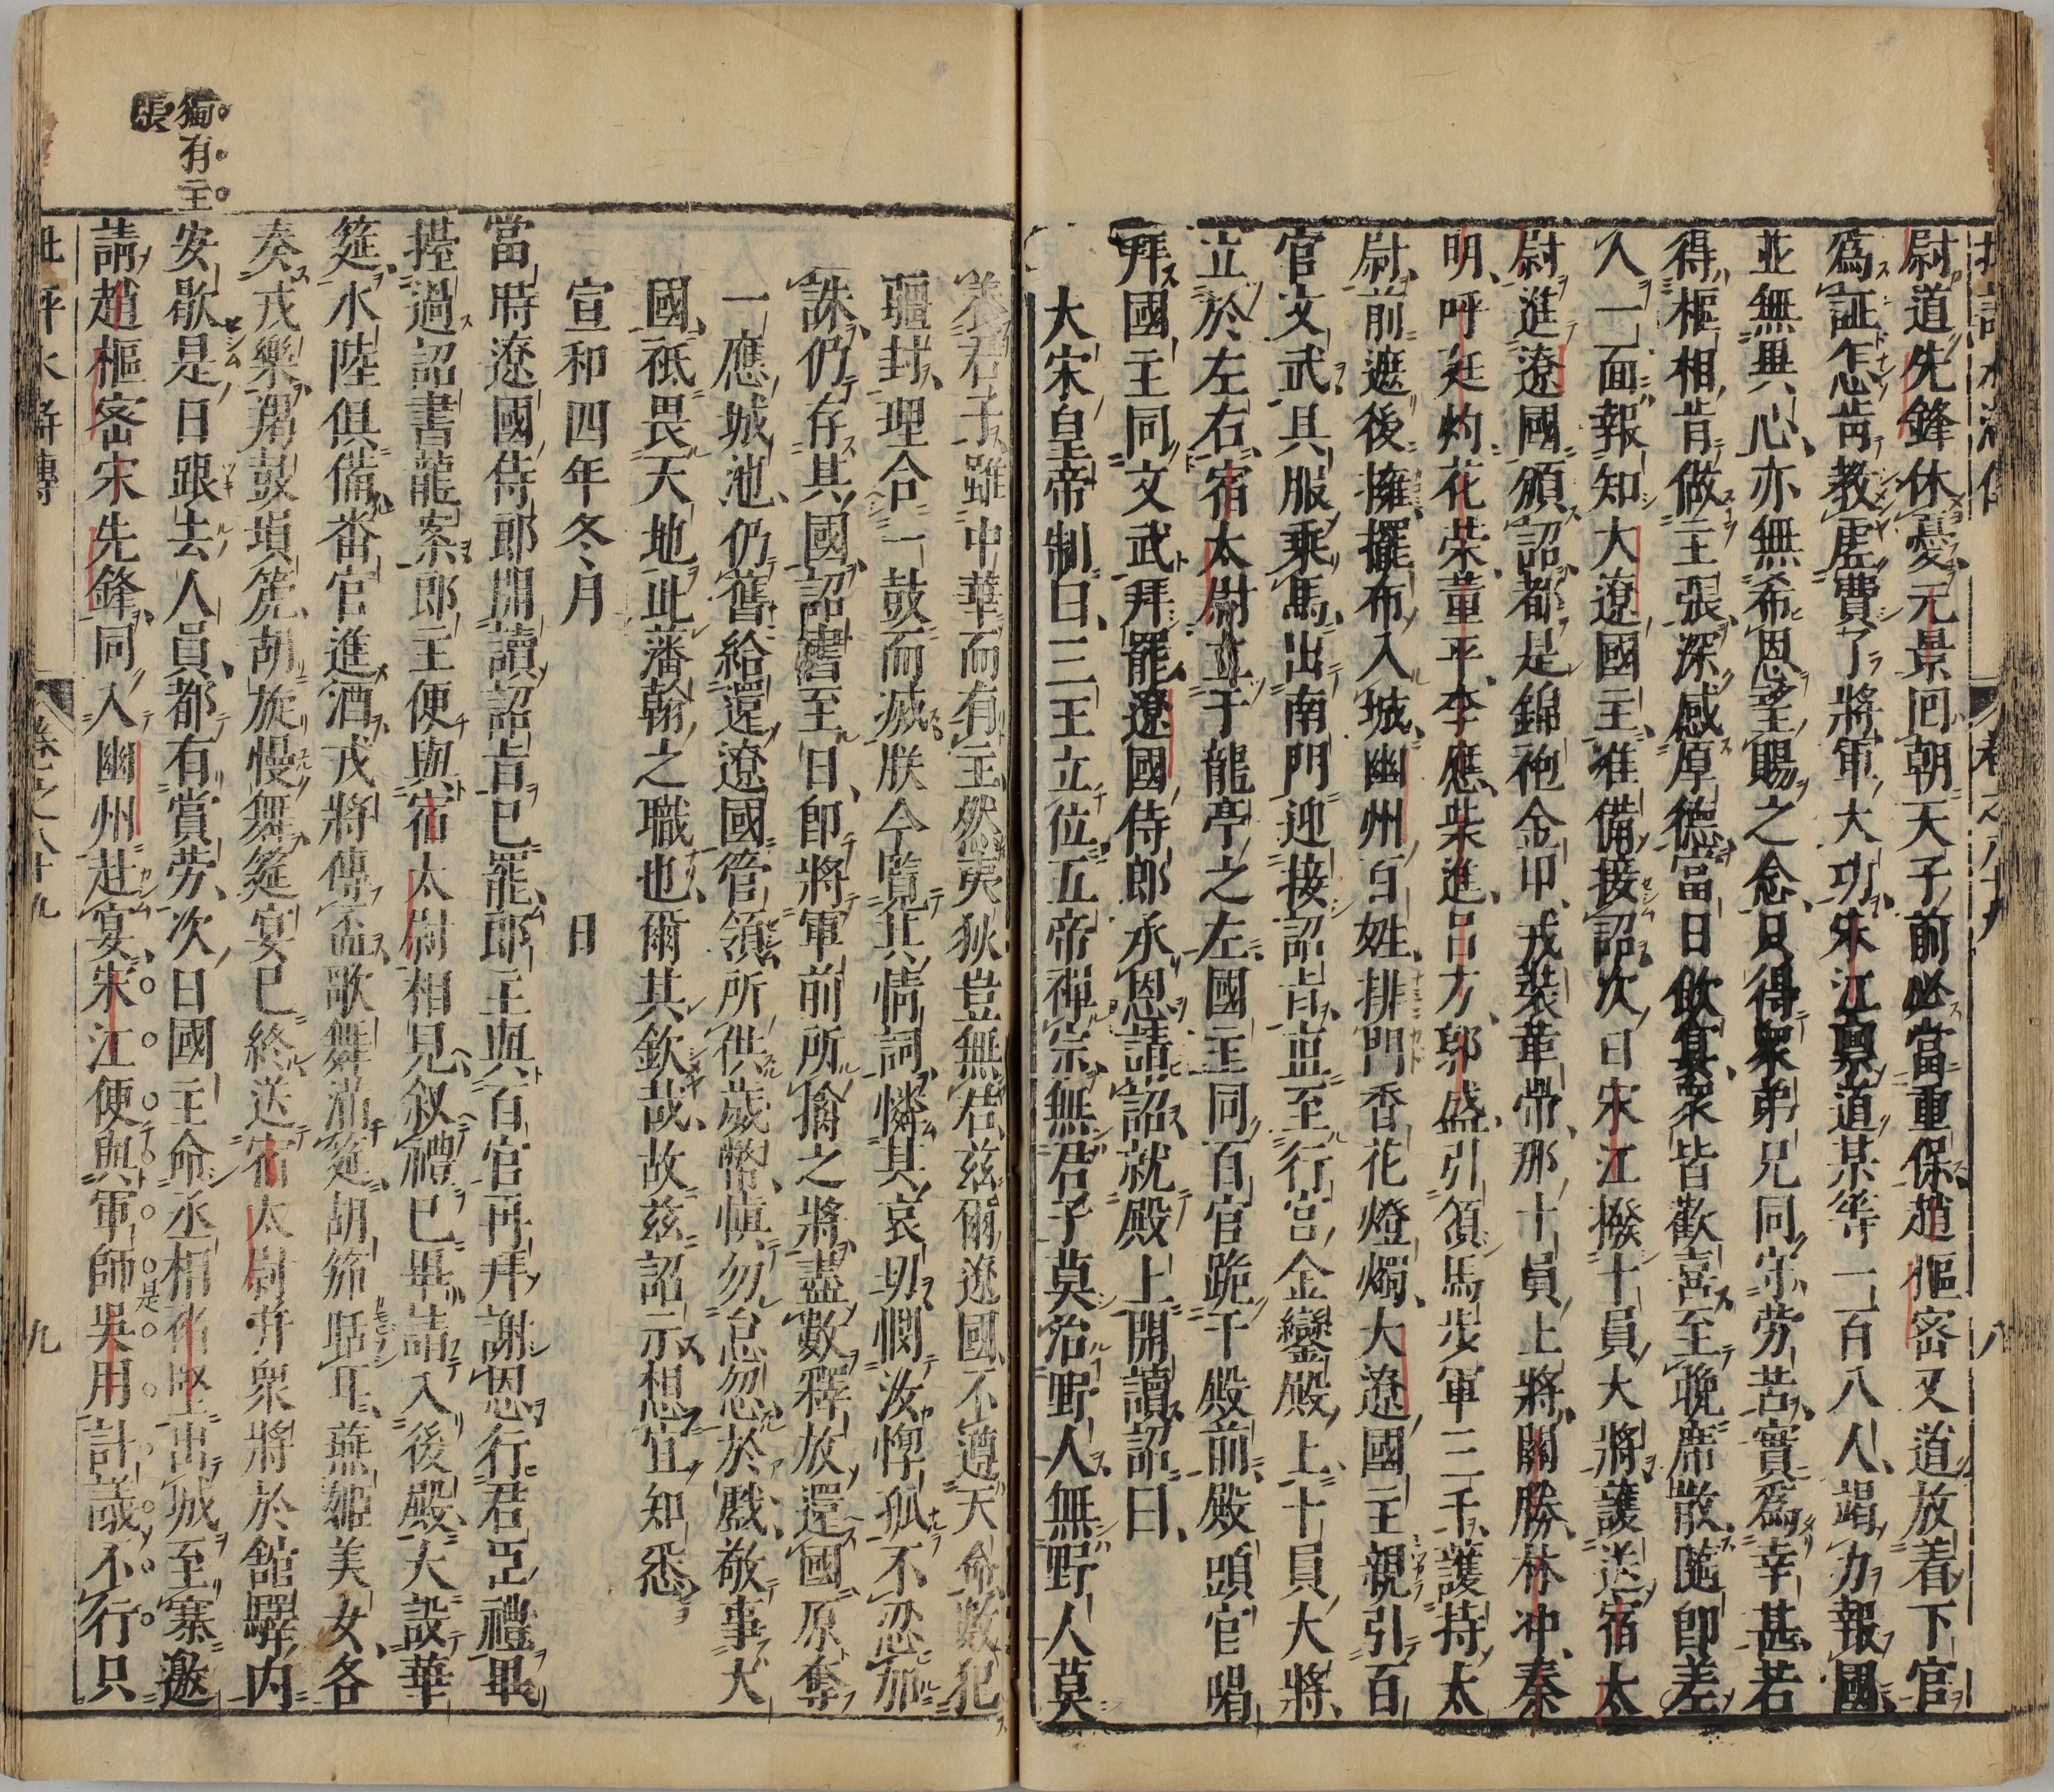 批評水滸傳 卷之八十九 八
尉道先鋒休憂元景回朝天子前必當重保趙樞密又道放着下官
爲証怎肯教虛費了將軍大功宋江禀道某等一百八人竭力報國
並無異心亦無希恩望賜之念只得衆弟兄同守勞苦實爲幸甚若
得樞相肯做主張深感厚德當日飲宴衆皆歡喜至晚席散隨卽差
人一面報知大遼國主准備接詔次日宋江撥十員大將護送宿太
尉進遼國頒詔都是錦袍金甲戎裝革帶那十員上將關勝林冲秦
明呼延灼花荣董平李應柴進呂方郭盛引領馬步軍三千護持太
尉前遮後擁擺布入城幽州百姓排門香花燈燭大遼國主親引百
官文武具服乘馬出南門迎接詔旨直至行宮金鑾殿上十員大將
立於左右宿太尉立于龍亭之左國主同百官跪于殿前殿頭官唱
拜國主同文武拜罷遼國侍郎承恩請詔就殿上開讀詔曰
大宋皇帝制曰三王立位五帝禪宗無君子莫治野人無野人莫
養君子雖中華而有主然夷狄豈無君玆爾遼國不遵天命數犯
疆封理合一鼓而滅朕今覧其情詞憐其哀切憫汝惸孤不忍加
誅仍存其國詔書至日卽將軍前所擒之將盡數釋放還國原奪
一應城池仍舊給還遼國管領所供歲幣慎勿怠忽於戲敬事大
國祗畏天地此藩翰之職也爾其欽哉故玆詔示想宜知悉
宣和四年冬月 日
當時遼國侍郎開讀詔旨已罷郎主與百官再拜謝恩行君臣禮畢
擡過詔書龍案郎主便與宿太尉相見叙禮已畢請入後殿大設華
筵水陸俱備番官進酒戎將傳盃歌舞滿筵胡笳聒耳燕姬美女各
奏戎樂羯鼓塤篪胡旋慢舞筵宴已終送宿太尉并衆將於館驛內
安歇是日跟去人員都有賞勞次日國主命丞相褚堅出城至寨邀
請趙樞密宋先鋒同入幽州赴宴宋江便與軍師吳用計議不行只
獨有主
張
是
批評水滸傳 卷之八十九 九